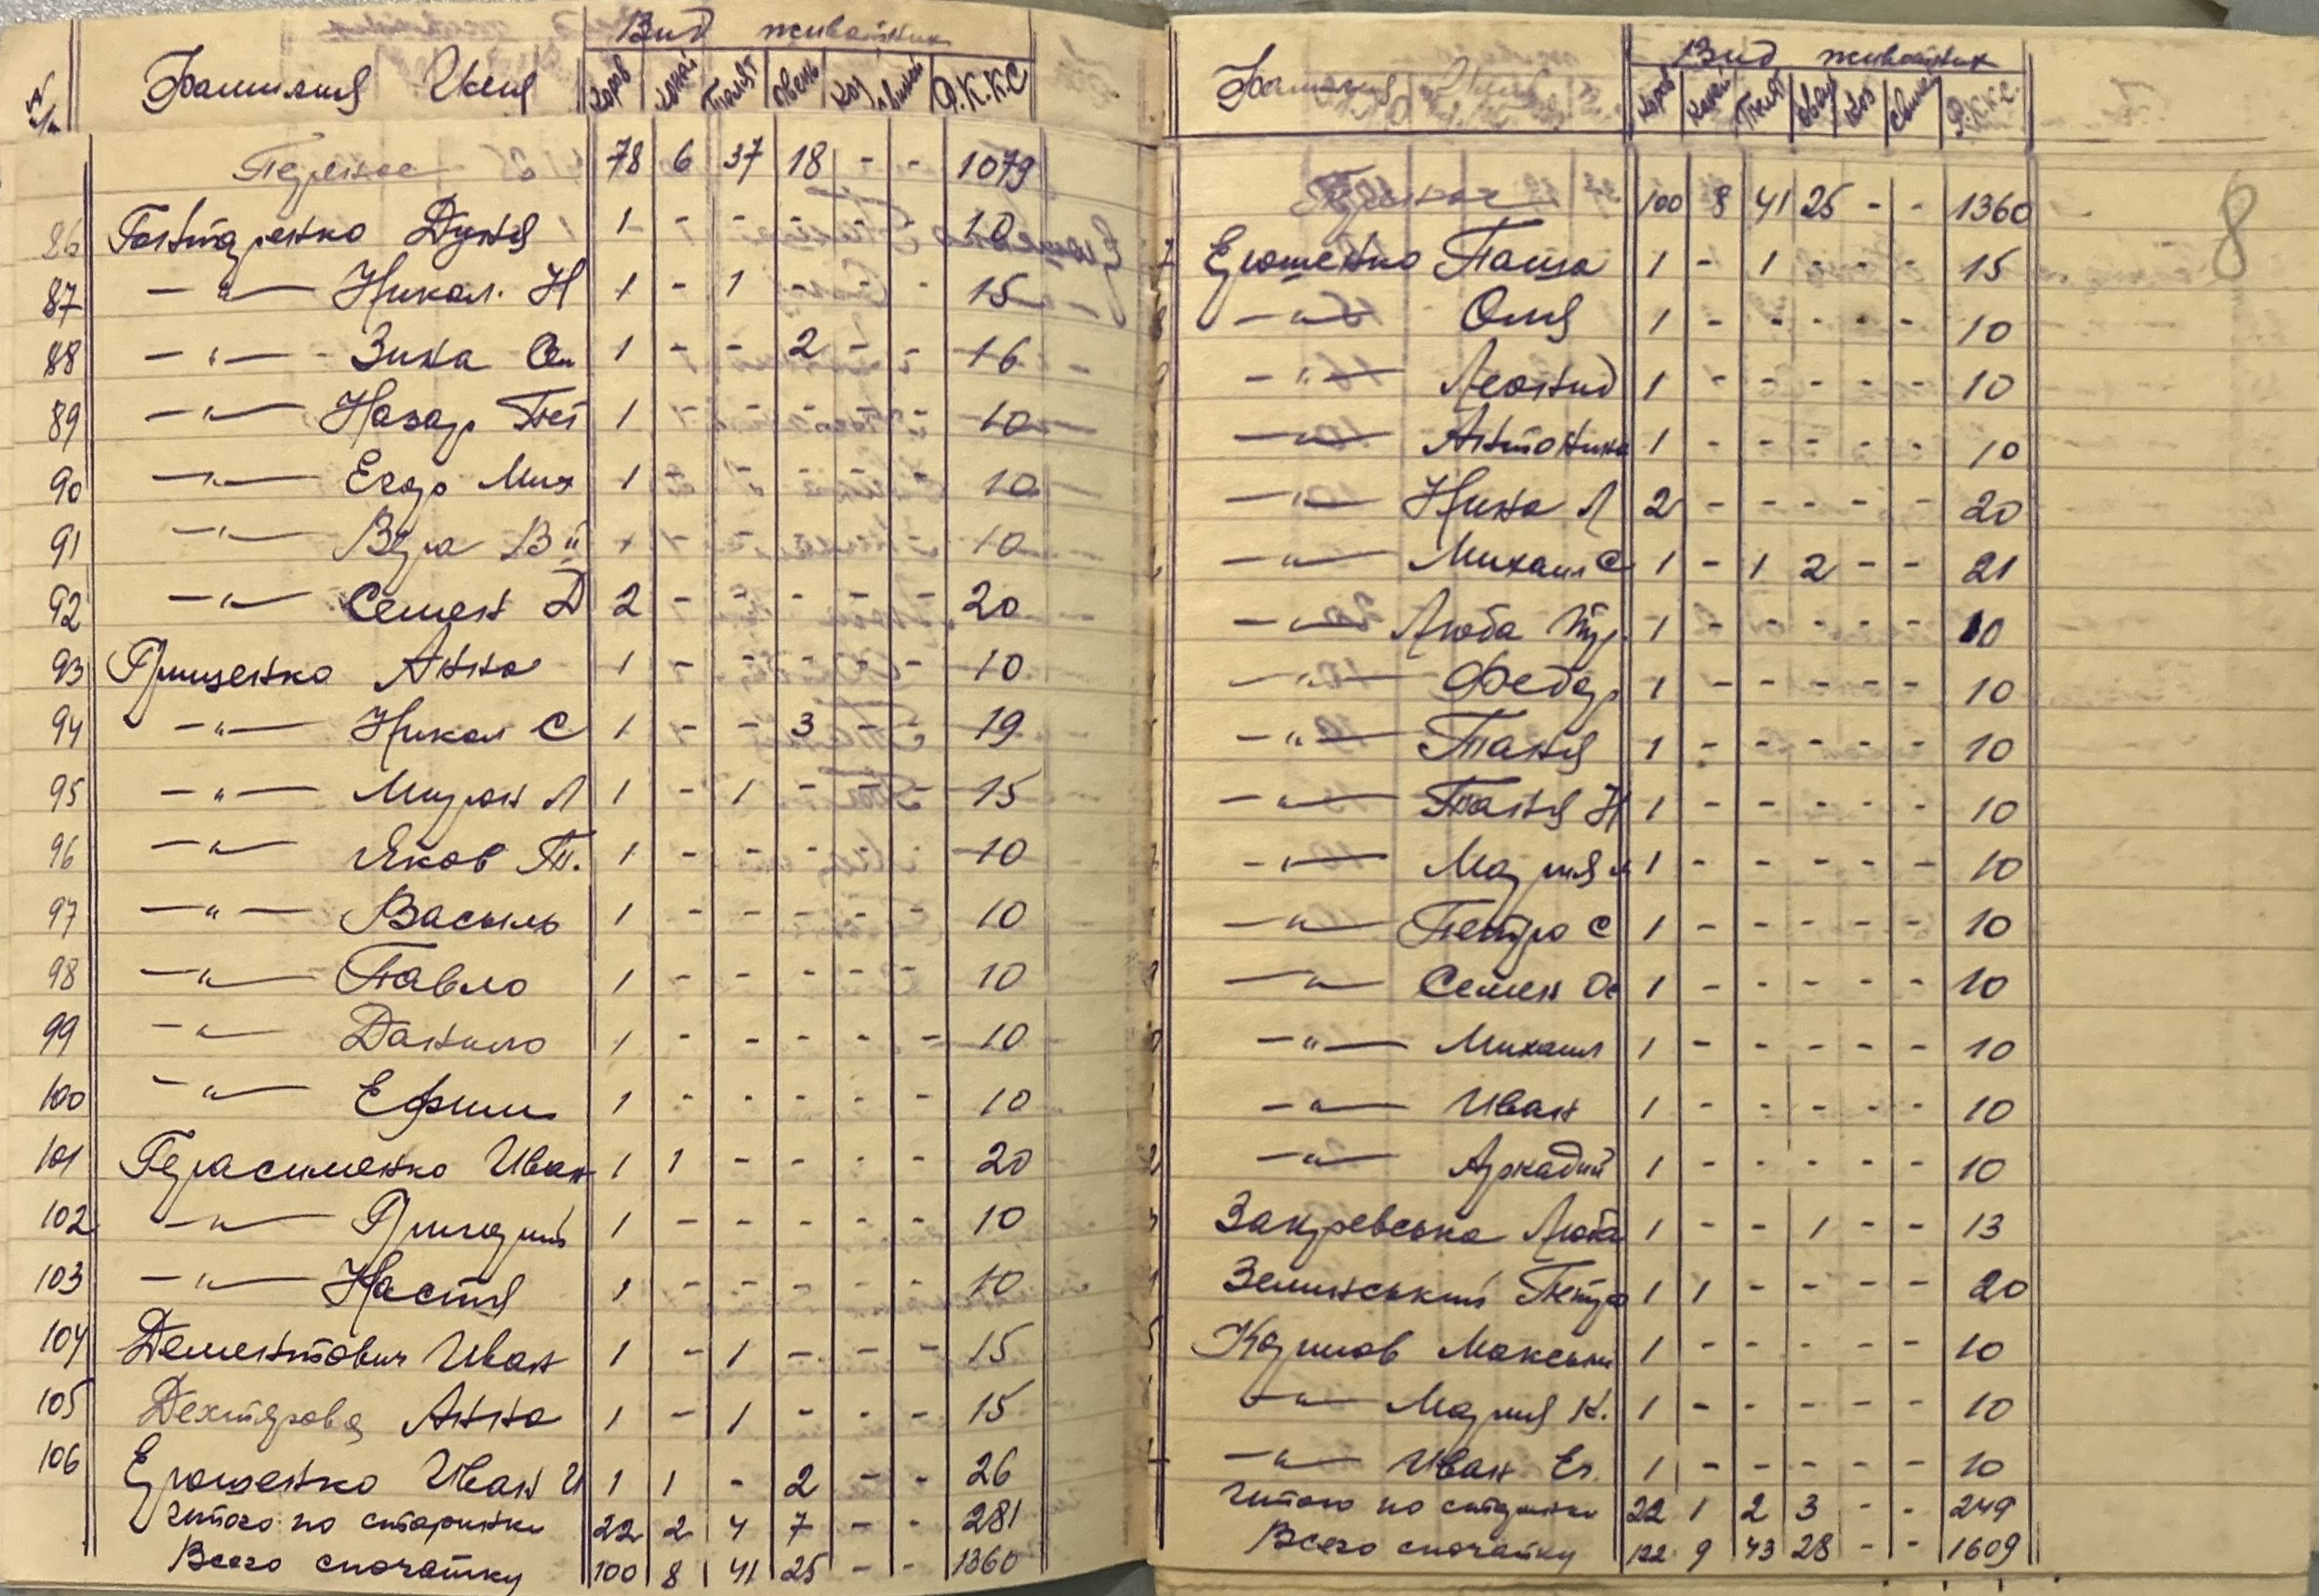 Вид живатних
№ п/п Фамилия Имя Коров Коней Телят Овець Коз Свиней Ф.К.К.С
Перенос 78 6 37 18 - - 1079
86 Гонтаренко Дуня 1 - - - - - 10
87 —"— Никол. Н 1 - 1 - - - 15
88 —"— Зина Сем 1 - - 2 - - 16
89 —"— Назар Пет 1 - - - - - 10
90 —"— Егор Мих 1 - - - - - 10
91 —"— Вера В 1 - - - - - 10
92 —"— Семен Д 2 - - - - - 20
93 Грищенко Анна 1 - - - - - 10
94 —"— Никол С 1 - - 3 - - 19
95 —"— Мирон Л 1 - 1 - - - 15
96 —"— Яков Т. 1 - - - - - 10
97 —"— Василь 1 - - - - - 10
98 —"— Павло 1 - - - - - 10
99 —"— Данило 1 - - - - - 10
100 —"— Ефим 1 - - - - - 10
101 Герасименко Иван 1 1 - - - - 20
102 —"— Григорий 1 - - - - - 10
103 —"— Настя 1 - - - - - 10
104 Дементович Иван 1 - 1 - - - 15
105 Дехтярова Анна 1 - 1 - - - 15
106 Ерошенко Иван И 1 1 - 2 - - 26
Итого по старинки 22 2 4 7 - - 281
Всего спочатку 100 8 41 25 - - 1360
8
Вид живатних
Фамилия Имя Коров Коней Телят Овець Коз Свиней Ф.К.К.С.
Перенос 100 8 41 25 - - 1360
7 Ерошенко Паша 1 - 1 - - - 15
8 —"— Оля 1 - - - - - 10
9 —"— Леонид 1 - - - - - 10
—"— Антонина 1 - - - - - 10
—"— Нина Л 2 - - - - - 20
—"— Михаил С 1 - 1 2 - - 21
—"— Люба Тур. 1 - - - - - 10
—"— Федор 1 - - - - - 10
—"— Таня 1 - - - - - 10
—"— Таня Н 1 - - - - - 10
—"— Мария м 1 - - - - - 10
—"— Петро С 1 - - - - - 10
—"— Семен Ос 1 - - - - - 10
—"— Михаил 1 - - - - - 10
—"— Иван 1 - - - - - 10
—"— Аркадий 1 - - - - - 10
Закревська Люба 1 - - 1 - - 13
Зелинський Петро 1 1 - - - - 20
5 Каримов Максим 1 - - - - - 10
—"— Мария К. 1 - - - - - 10
—"— Иван Ег. 1 - - - - - 10
Итого по старинки 22 1 2 3 - - 249
Всего спочатку 122 9 43 28 - - 1609